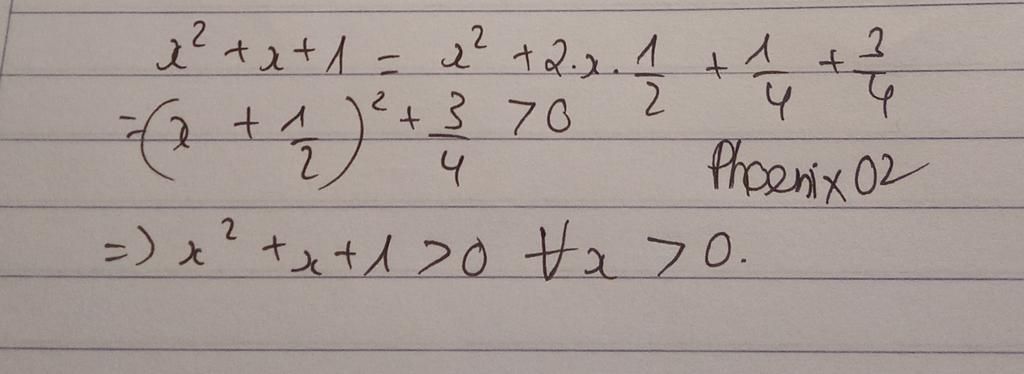 x² + x + 1 = x² + 2·x·1/2 + 1/4 + 3/4
=(x + 1/2)² + 3/4 >0
Phoenix02
=> x² + x + 1 > 0 ∀x > 0.